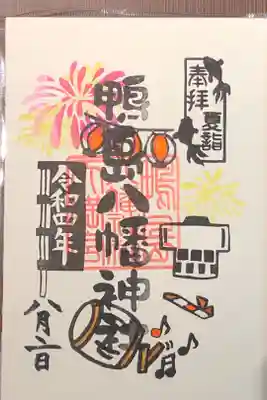 奉拝
夏詣
鴨居八幡神社
令和四年
八月一日